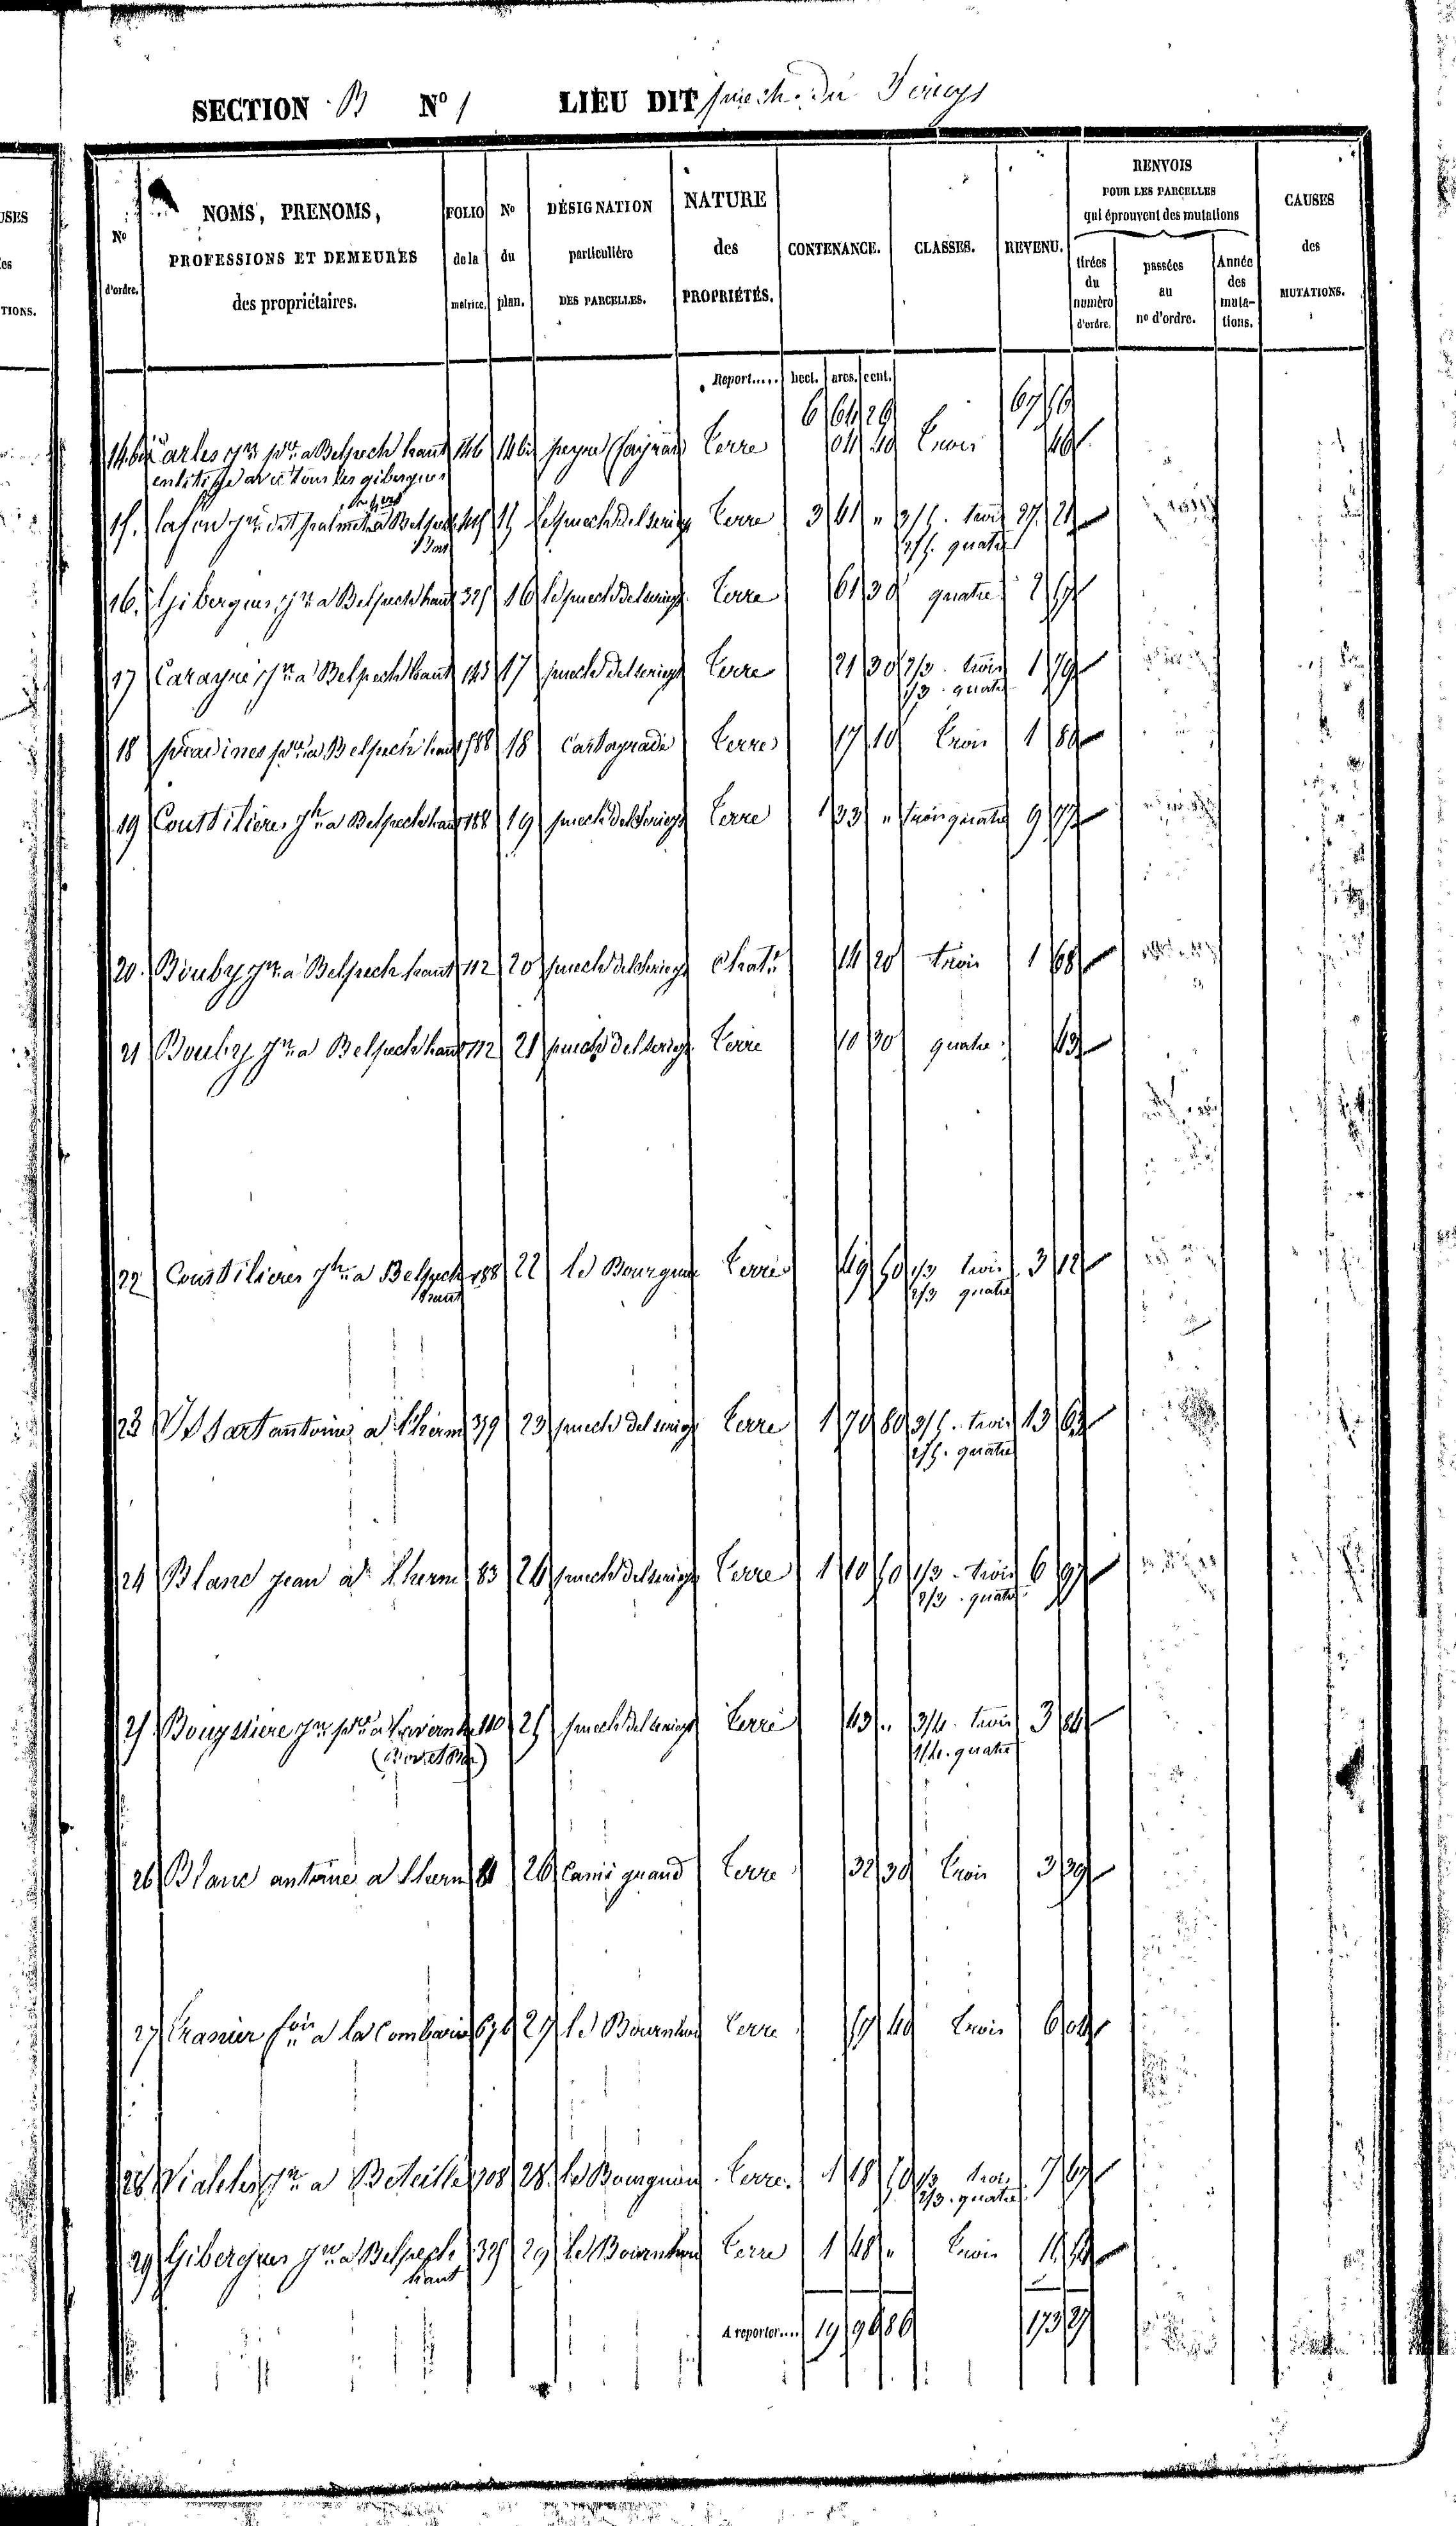 SECTION B N° 1 LIEU DIT puech du Serieys
USES
es
TIONS.
N° d'ordre.
NOMS, PRENOMS,
PROFESSIONS ET DEMEURES
des propriétaires.
FOLIO de la matrice.
N° du plan.
DÉSIGNATION particulière DES PARCELLES.
NATURE des PROPRIÉTÉS.
CONTENANCE.
CLASSES.
REVENU.
RENVOIS
POUR LES PARCELLES
qui éprouvent des mutations
tirées du numéro d'ordre.
passées au n° d'ordre.
Année des mutations.
CAUSES des MUTATIONS.
Report..... hect. ares. cent.
6 64 26 67 56
14 bis Carles jn pre a Belpech haut 146 14 bis peyre Terre 04 40 trois 46
en litige avec tous les gibergues
15. a Belpech 15 le puech del serieys Terre 3 61 " 3/5. trois 27 21
haut 2/5. quatre
16. Gibergues jn a Belpech haut 325 16 le puech del serieys Terre 61 30 quatre 2
17 Carayre jn a Belpech haut 145 17 puech del serieys Terre 21 30 2/3. trois 1 79
1/3. quatre
18 pradines pre a Belpech haut 588 18 Cartayrade Terre 17 10 trois 1 80
19 Coustilières jh a Belpech haut 188 19 puech del Serieys Terre 1 33 " trois quatre 9 77
20. Bouby jn a Belpech haut 112 20 puech del serieys Chatr 14 20 trois 1 68
21 Bouby jn a Belpech haut 112 21 puech del serieys Terre 10 30 quatre 43
22 Coustilieres jh a Belpech 188 22 le Bourgnou Terre 49 50 1/3 trois 3 12
haut 2/3 quatre
23 Issart antoine a lherm 379 23 puech del serieys Terre 1 70 80 3/5. trois 13 63
2/5. quatre
24 Blanc jean a lherm 83 24 puech del serieys Terre 1 10 50 1/3. trois 6 97
2/3. quatre
25 Bouyssiere jn pre a 110 25 puech del serieys Terre 43 " 3/4. trois 3 84
1/4. quatre
26 Blanc antoine a lherm 81 26 Cami grand Terre 32 30 trois 3 39
27 a la Combarie 676 27 le Bournhou Terre 57 40 trois 6 04
28 Vialelles jn a Beteille 708 28. le Bourgnou Terre. 1 18 50 1/3 trois 7 67
2/3. quatre
29 Gibergues jn a Belpech 325 29 le Bournhou Terre 1 48 " trois 15 54
haut
A reporter.... 19 96 86 173 27